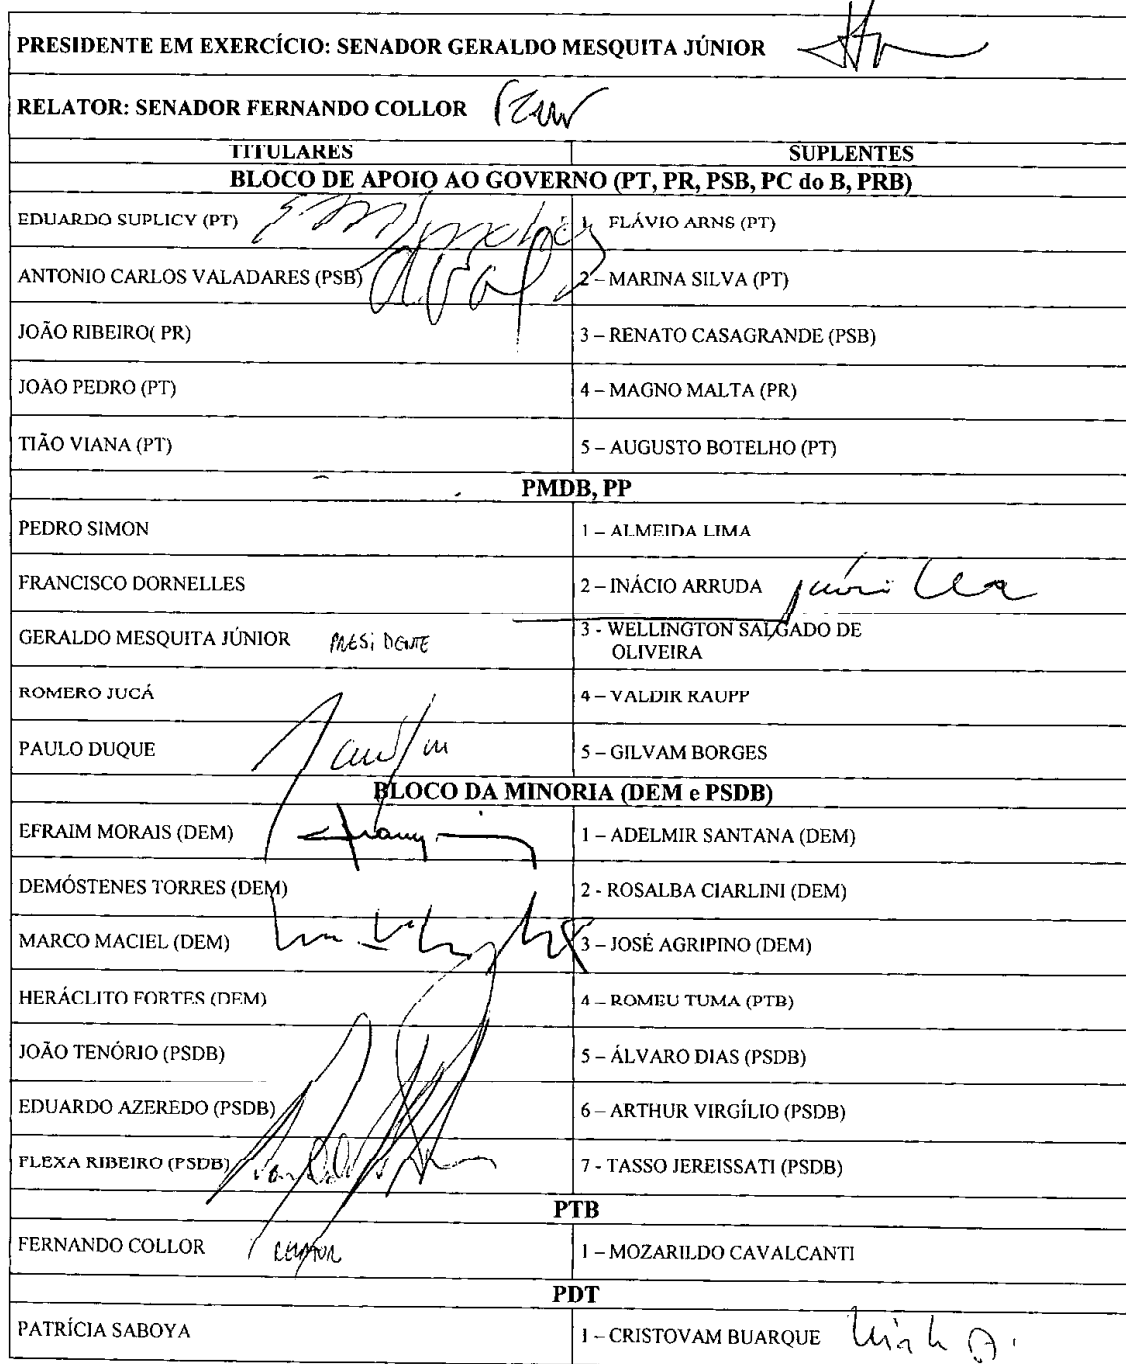 PRESIDENTE EM EXERCÍCIO: SENADOR GERALDO MESQUITA JÚNIOR
RELATOR: SENADOR FERNANDO COLLOR
TITULARES SUPLENTES
BLOCO DE APOIO AO GOVERNO (PT, PR, PSB, PC do B, PRB)
EDUARDO SUPLICY (PT) 1 FLÁVIO ARNS (PT)
ANTONIO CARLOS VALADARES (PSB) 2 – MARINA SILVA (PT)
JOÃO RIBEIRO( PR) 3 – RENATO CASAGRANDE (PSB)
JOAO PEDRO (PT) 4 – MAGNO MALTA (PR)
TIÃO VIANA (PT) 5 – AUGUSTO BOTELHO (PT)
PMDB, PP
PEDRO SIMON 1 – ALMEIDA LIMA
FRANCISCO DORNELLES 2 – INÁCIO ARRUDA
GERALDO MESQUITA JÚNIOR PRESIDENTE 3 - WELLINGTON SALGADO DE
OLIVEIRA
ROMERO JUCÁ 4 – VALDIR RAUPP
PAULO DUQUE 5 – GILVAM BORGES
BLOCO DA MINORIA (DEM e PSDB)
EFRAIM MORAIS (DEM) 1 – ADELMIR SANTANA (DEM)
DEMÓSTENES TORRES (DEM) 2 - ROSALBA CIARLINI (DEM)
MARCO MACIEL (DEM) 3 – JOSÉ AGRIPINO (DEM)
HERÁCLITO FORTES (DEM) 4 – ROMEU TUMA (PTB)
JOÃO TENÓRIO (PSDB) 5 – ÁLVARO DIAS (PSDB)
EDUARDO AZEREDO (PSDB) 6 – ARTHUR VIRGÍLIO (PSDB)
FLEXA RIBEIRO (PSDB) 7 - TASSO JEREISSATI (PSDB)
PTB
FERNANDO COLLOR RELATOR 1 – MOZARILDO CAVALCANTI
PDT
PATRÍCIA SABOYA 1 – CRISTOVAM BUARQUE